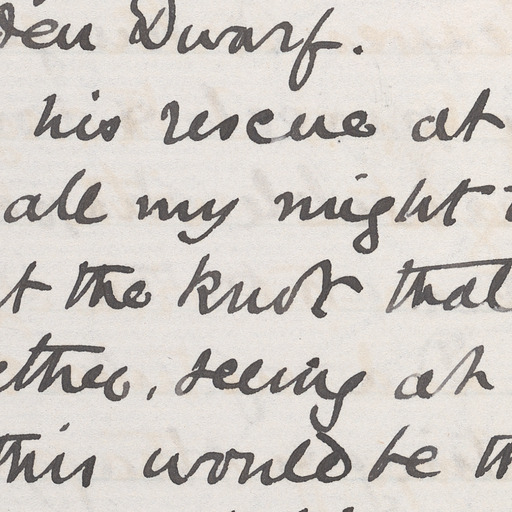 den Dwarf.
his rescue at
all my might
t the knot that
ether, seeing at
this would be th